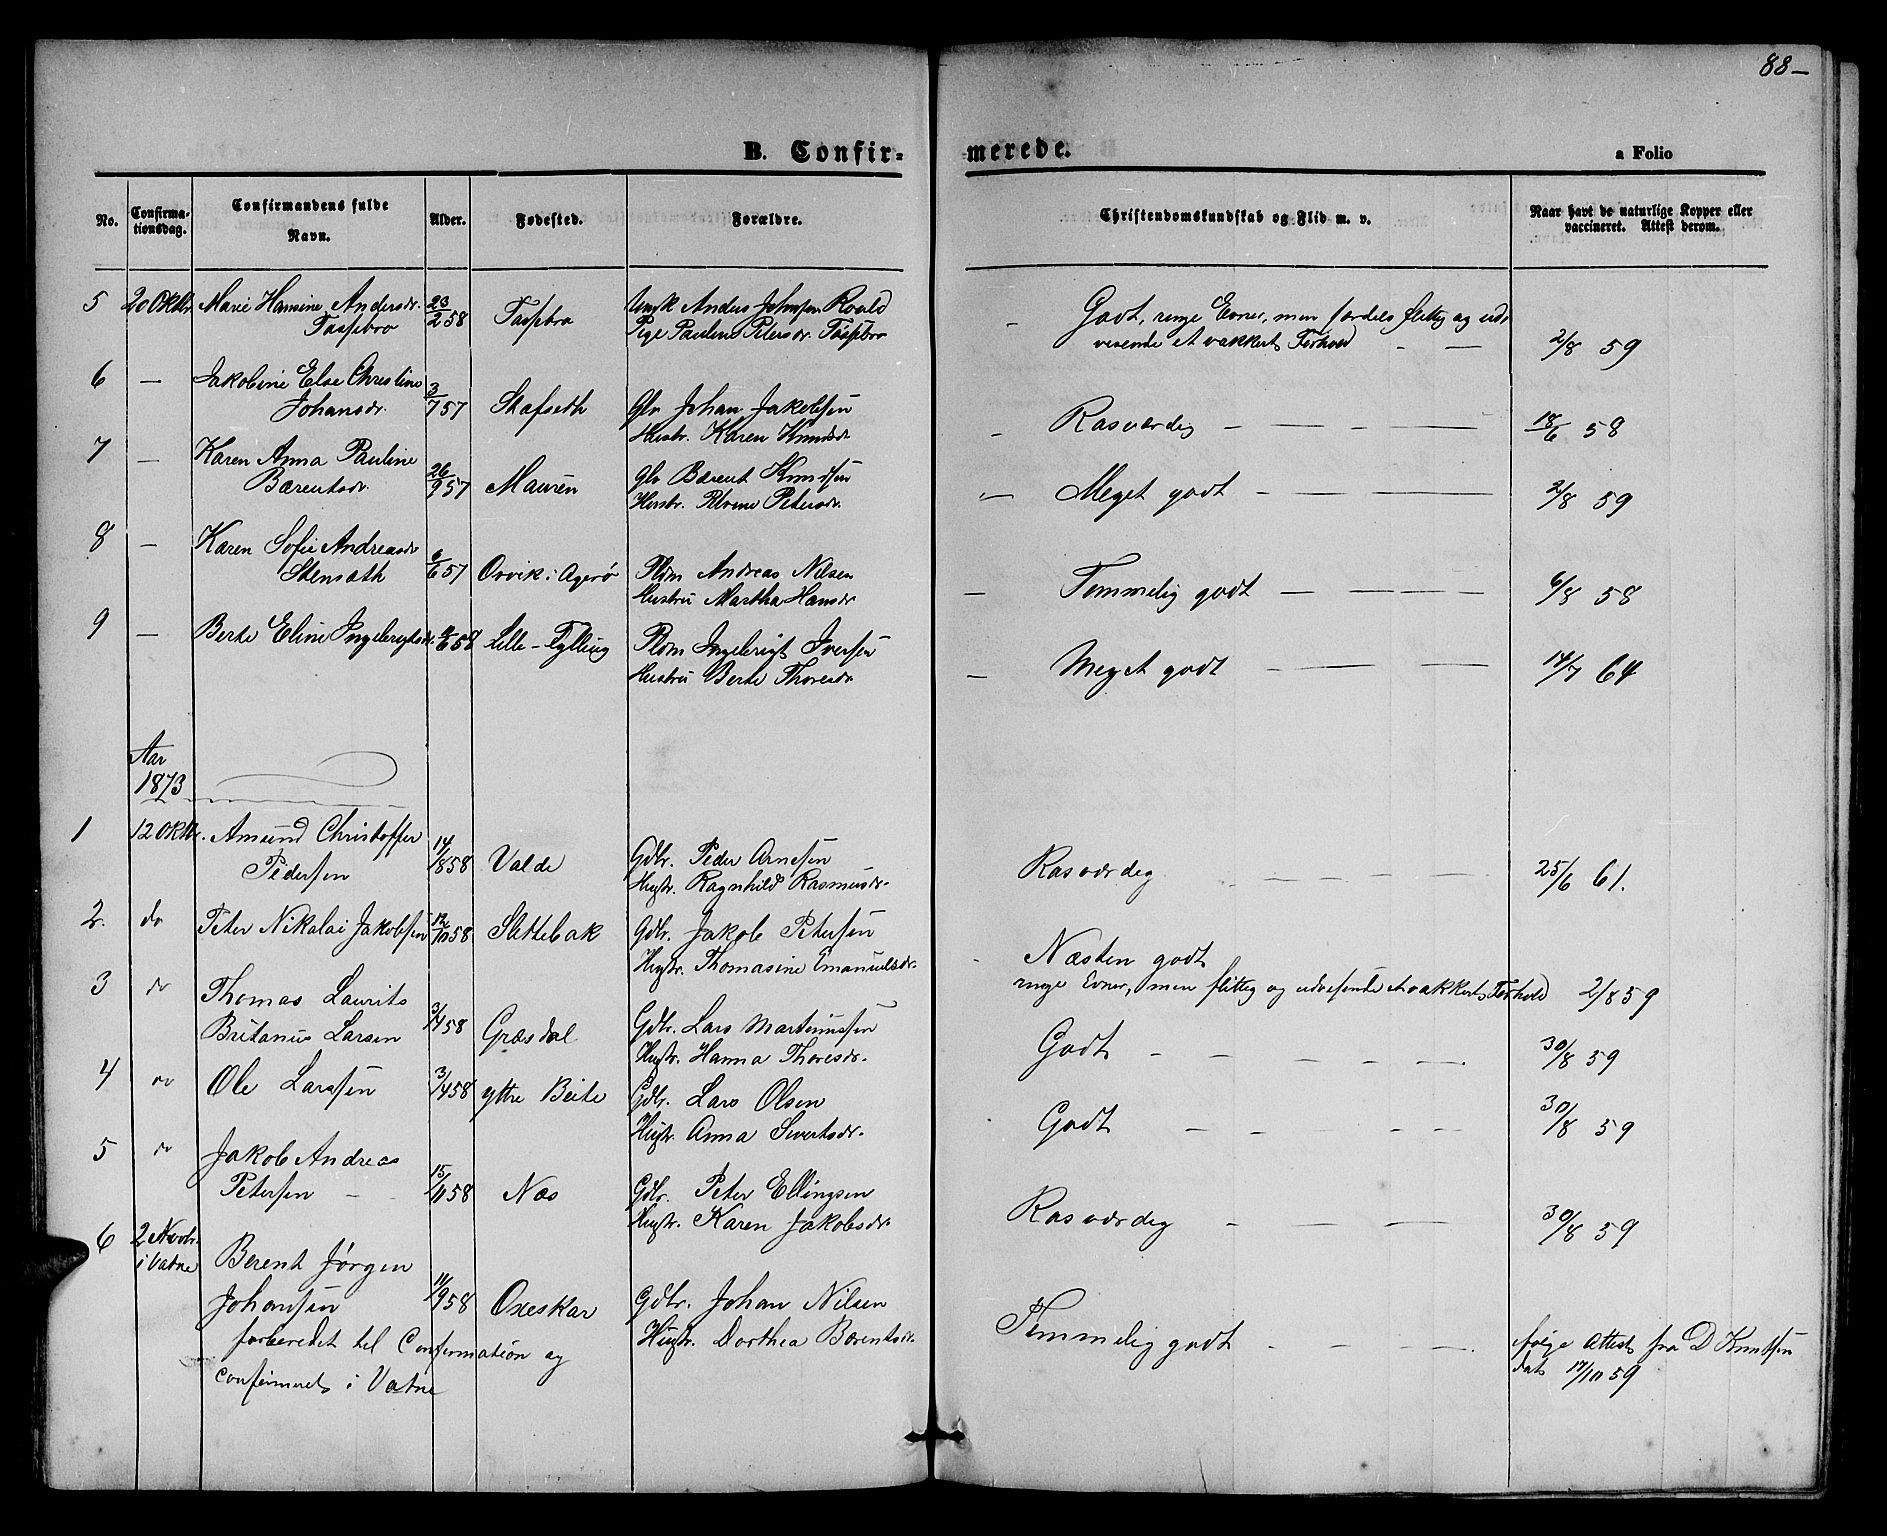 88-
B. Confir-
merede.
a Folio
No.
Confirma-
tionsdag.
Confirmandens fulde
Navn.
Alder.
Fødested.
Forældre.
Christendomskundskab og Flid m. v.
Naar havt de naturlige Kopper eller
vaccineret. Attest derom.
5 20 Oktbr. Marie Hansine Andersdr. 23/2 58 Tassebro Ungk Anders Johnsen Roald
Tassebro Pige Pauline Petersdr. Tassebro
Godt, ringe Evner, men særdeles flittig og ud-
visende et vakkert Forhold - — 2/8 59
6 — Jakobine Else Christine
Johansdr. 3/7 57 Stafseth Gbr Johan Jakobsen
Hustr. Karen Knudsdr
Rasværdig — — — — — 18/6 58
7 — Karen Anna Pauline
Bærentsdr. 26/9 57 Mauren Gbr Bærent Knudsen
Hustr. Petrine Petersdr.
— Meget godt — — — — 2/8 59
8 — Karen Sofie Andreasdr
Stensæth 6/6 57 Orvik i Agerø Pldm Andreas Nilsen
Hustru Martha Hansdr
— Temmelig godt — — — — 6/8 58
9 — Berte Eline Ingebrigtsdr. 4/6 58 Lille-Fylling Pldm Ingebrigt Iversen
Hustru Berte Thoresdr
— Meget godt — — — 14/7 64
Aar
1873
1 12 Oktbr. Amund Christoffer
Pedersen 14/8 58 Valde Gdbr. Peder Arnesen
Hustr. Ragnhild Rasmusdr.
Rasværdig — — — — 25/6 61.
2. do Peter Nikolai Jakobsen 12/10 58 Slettebak Gdbr. Jakob Petersen
Hustr. Thomasine Emanuelsdr.
Næsten godt
ringe Evner, men flittig og udvisende et vakkert Forhold 2/8 59
3 do Thomas Laurits
Britanus Larsen 3/4 58 Græsdal Gdbr. Lars Martinussen
Hustr. Hanna Thoresdr.
Godt — — — — — 30/8 59
4 do Ole Larssen 3/4 58 yttre Beite Gdbr. Lars Olsen
Hustr. Anna Sivertsdr.
Godt — — — — — 30/8 59
5 do Jakob Andreas
Petersen — 15/11 58 Næs Gdbr. Peter Ellingsen
Hustr. Karen Jakobsdr
Rasværdig — — — — 30/8 59
6 2 Novbr.
i Vatne Berent Jørgen
Johansen 11/9 58 Oxeskar Gdbr. Johan Nilsen
Hustr. Dorthea Bærentsdr.
forberedet til Confirmation og
confirmeret i Vatne
Temmelig godt - — — — —
følge Attest fra D Knutsen
dat. 17/10 59